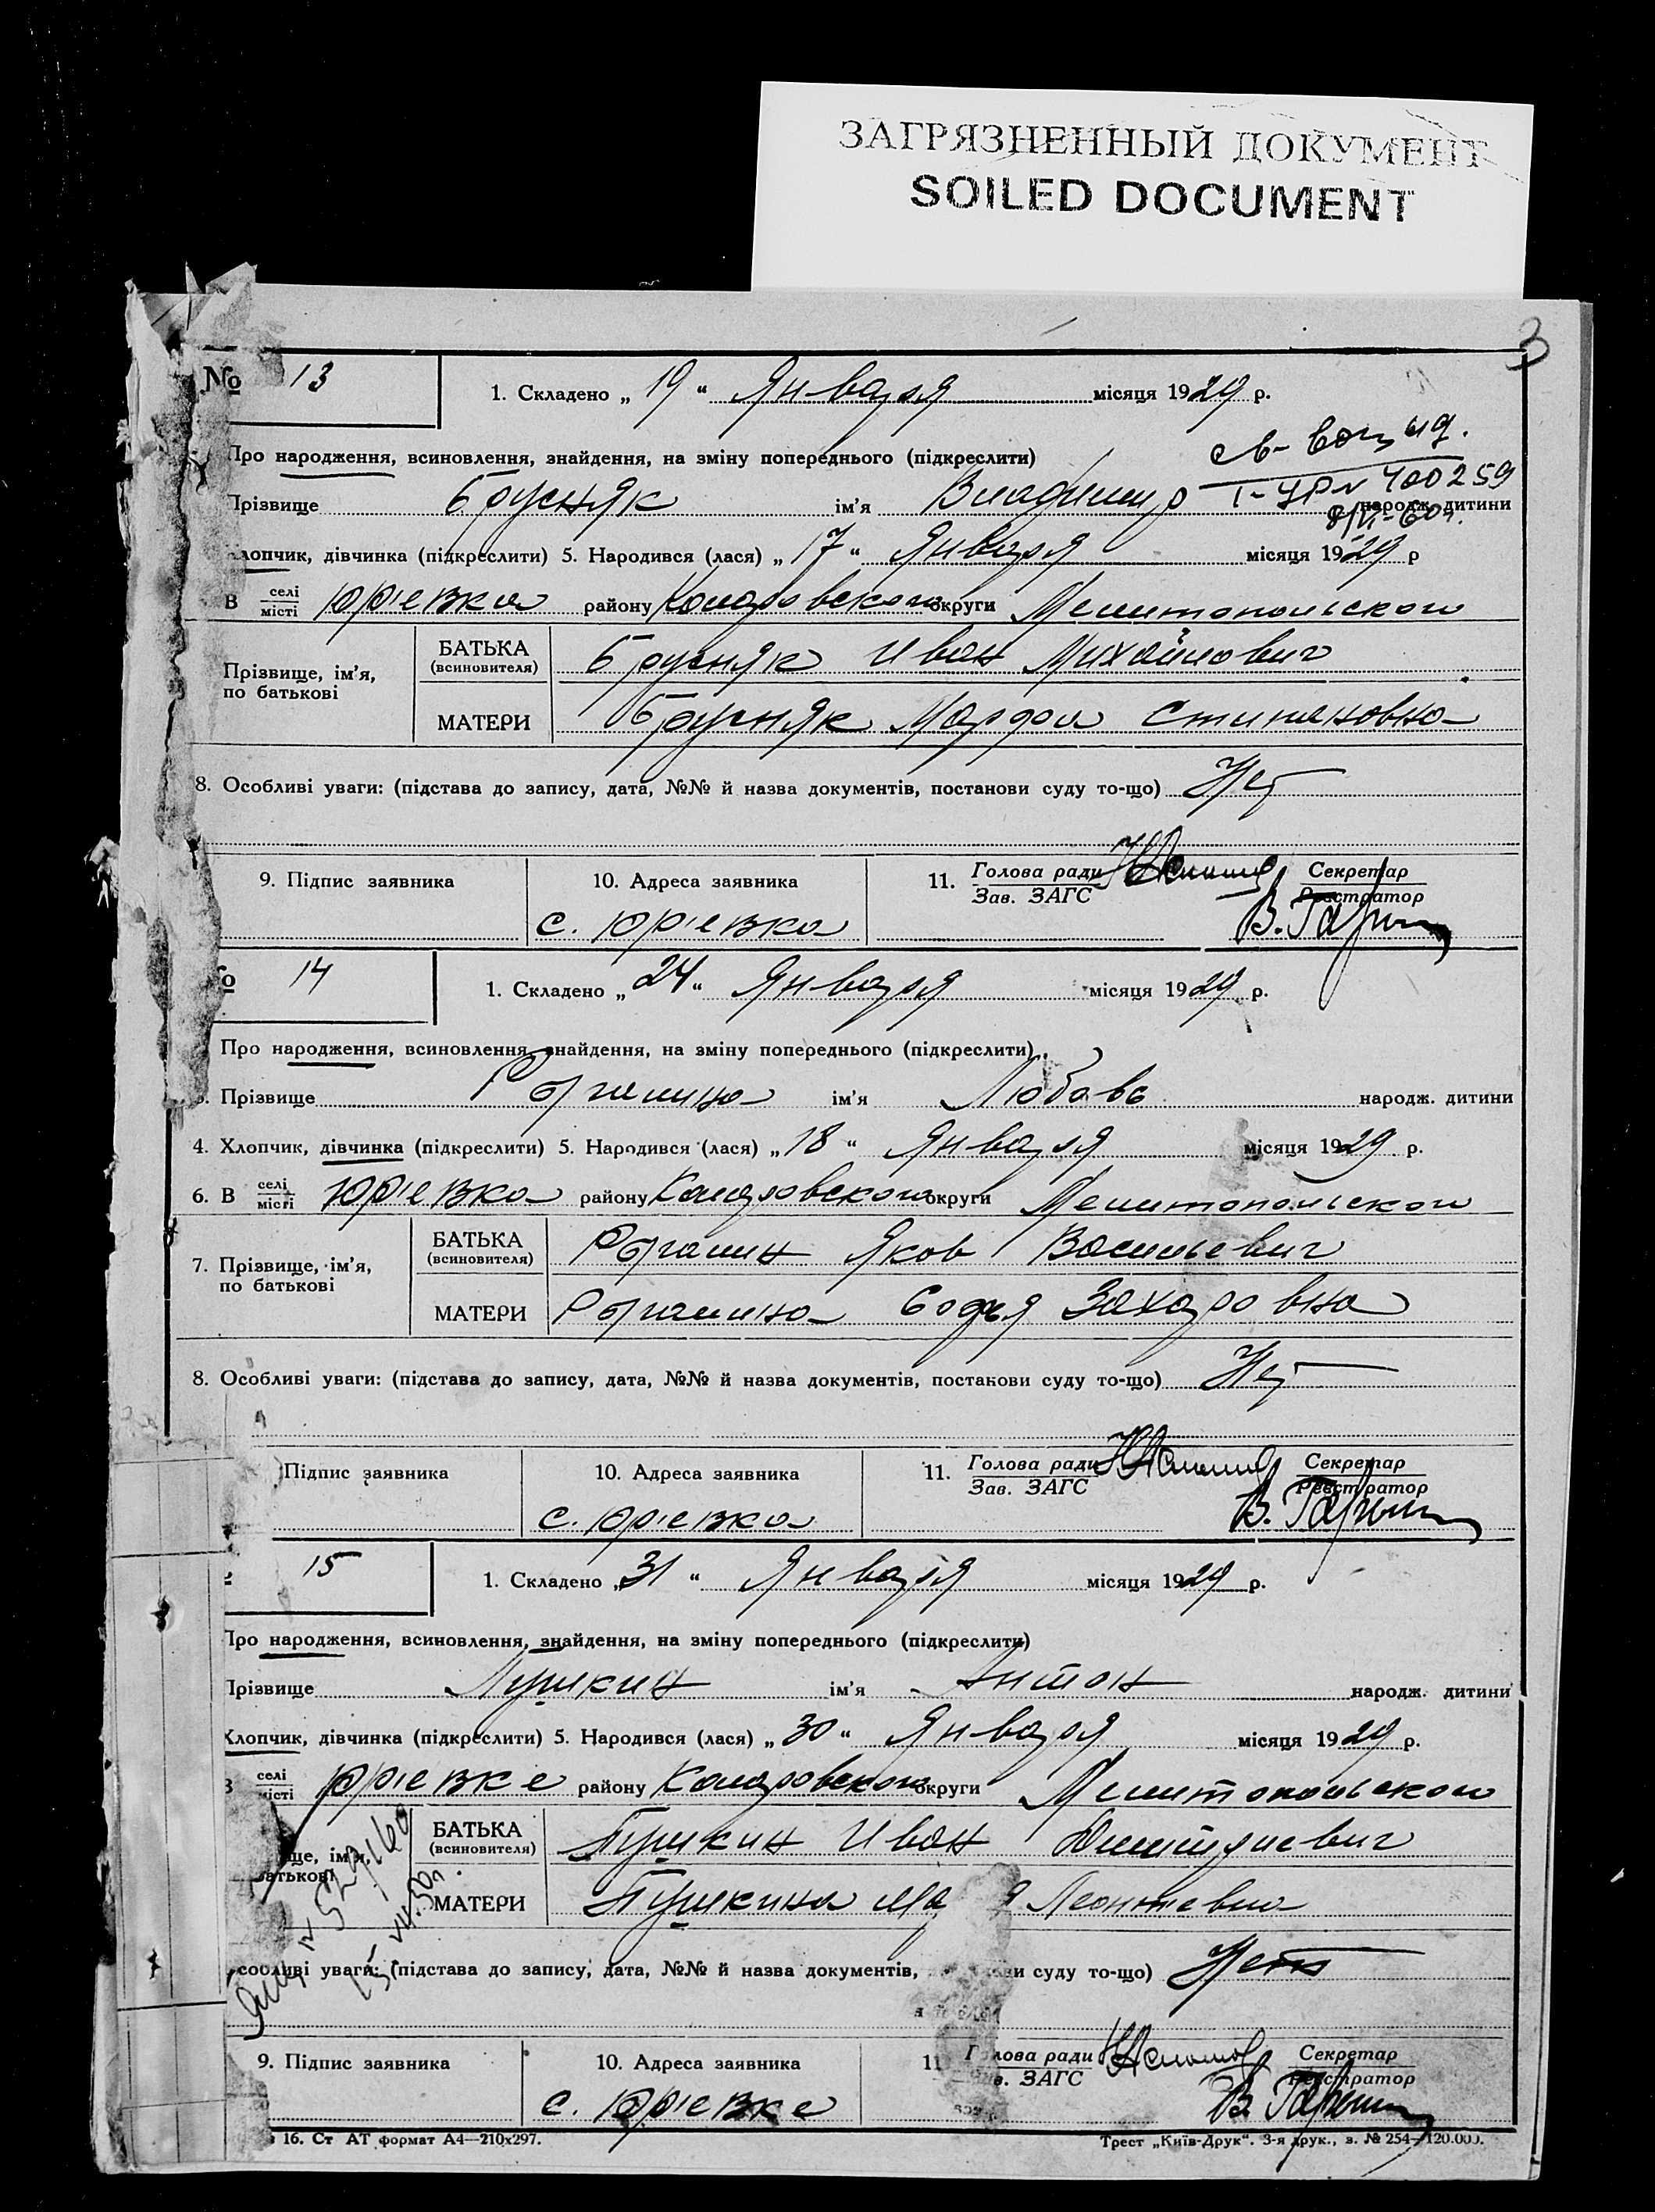 ЗАГРЯЗНЕННЫЙ ДОКУМЕНТ
SOILED DOCUMENT
3
№ 13
1. Складено „ 19 “ Января місяця 1929 р.
Про народження, всиновлення, знайдення, на зміну попереднього (підкреслити)
Прізвище Брусняк ім'я Владимир народж. дитини
I-УР № 400259
хлопчик, дівчинка (підкреслити) 5. Народився (лася) „ 17 “ Января місяця 1929 р
В селі/місті Юр'евка району Комаровского округи Мелитопольского
Прізвище, ім'я, по батькові
БАТЬКА (всиновителя) Брусняк Иван Михайлович
МАТЕРИ Брусняк Марфа
8. Особливі уваги: (підстава до запису, дата, №№ й назва документів, постанови суду то-що) Нет
9. Підпис заявника 10. Адреса заявника 11. Голова ради Секретар
Зав. ЗАГС Реєстратор
с. Юр'евка
№ 14
1. Складено „ 24 “ Января місяця 1929 р.
Про народження, всиновлення, знайдення, на зміну попереднього (підкреслити)
3. Прізвище ім'я Любовь народж. дитини
4. Хлопчик, дівчинка (підкреслити) 5. Народився (лася) „ 18 “ Января місяця 1929 р.
6. В селі/місті Юр'евка району Комаровского округи Мелитопольского
7. Прізвище, ім'я, по батькові
БАТЬКА (всиновителя) Яков Васильевич
МАТЕРИ Софья Захаровна
8. Особливі уваги: (підстава до запису, дата, №№ й назва документів, постанови суду то-що) Нет
Підпис заявника 10. Адреса заявника 11. Голова ради Секретар
Зав. ЗАГС Реєстратор
с. Юр'евка
15
1. Складено „ 31 “ Января місяця 1929 р.
Про народження, всиновлення, знайдення, на зміну попереднього (підкреслити)
Прізвище Пушкин ім'я Антон народж. дитини
Хлопчик, дівчинка (підкреслити) 5. Народився (лася) „ 30 “ Января місяця 1929 р.
В селі/місті Юр'евке району Комаровского округи Мелитопольского
БАТЬКА (всиновителя) Пушкин Иван Дмитриевич
МАТЕРИ Пушкина Леонтевна
особливі уваги: (підстава до запису, дата, №№ й назва документів, суду то-що) Нет
9. Підпис заявника 10. Адреса заявника 11 Голова ради Секретар
Зав. ЗАГС Реєстратор
с. Юр'евке
16. Ст АТ формат А4—210х297. Трест „Київ-Друк“. 3-я друк., з. № 254—120.000.